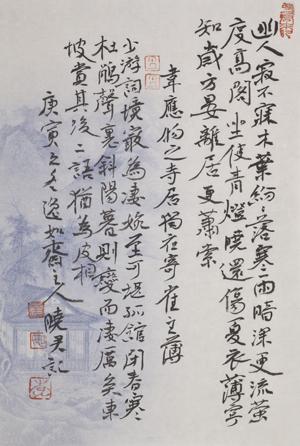 幽人寂不寐木葉紛紛落寒雨暗深更流螢
度高閣坐使青燈曉還傷夏衣薄寧
知歲方晏離居更蕭索
韋應物之寺居獨夜寄崔主簿
少游詞境最為淒婉至可堪孤館閉春寒
杜鵑聲裏斜陽暮則變而淒厲矣東
坡賞其後二語猶為皮相
庚寅之冬逸如齋主人曉君記